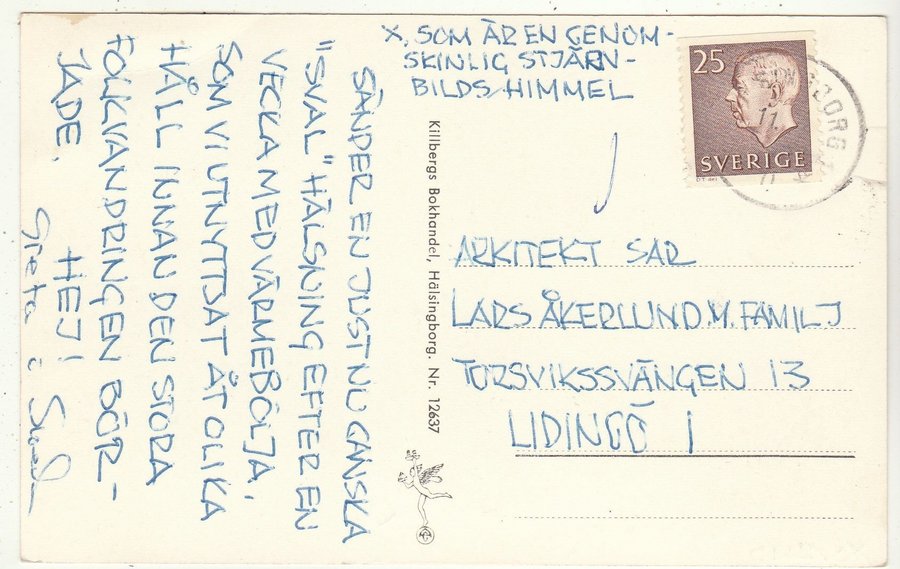 X, SOM ÄR EN GENOM-
SKINLIG STJÄRN-
BILDS HIMMEL
SÄNDER EN JUST NU GANSKA
"SVAL" HÄLSNING EFTER EN
VECKA MED VÄRMEBÖLJA,
SOM VI UTNYTTJAT ÅT OLIKA
HÅLL INNAN DEN STORA
FOLKVANDRINGEN BÖR-
JADE.
HEJ!
Greta &
Killbergs Bokhandel, Hälsingborg. Nr. 12637
25
SVERIGE
ARKITEKT SAR
LARS ÅKERLUND M. FAMILJ
TORSVIKSSVÄNGEN 13
LIDINGÖ 1